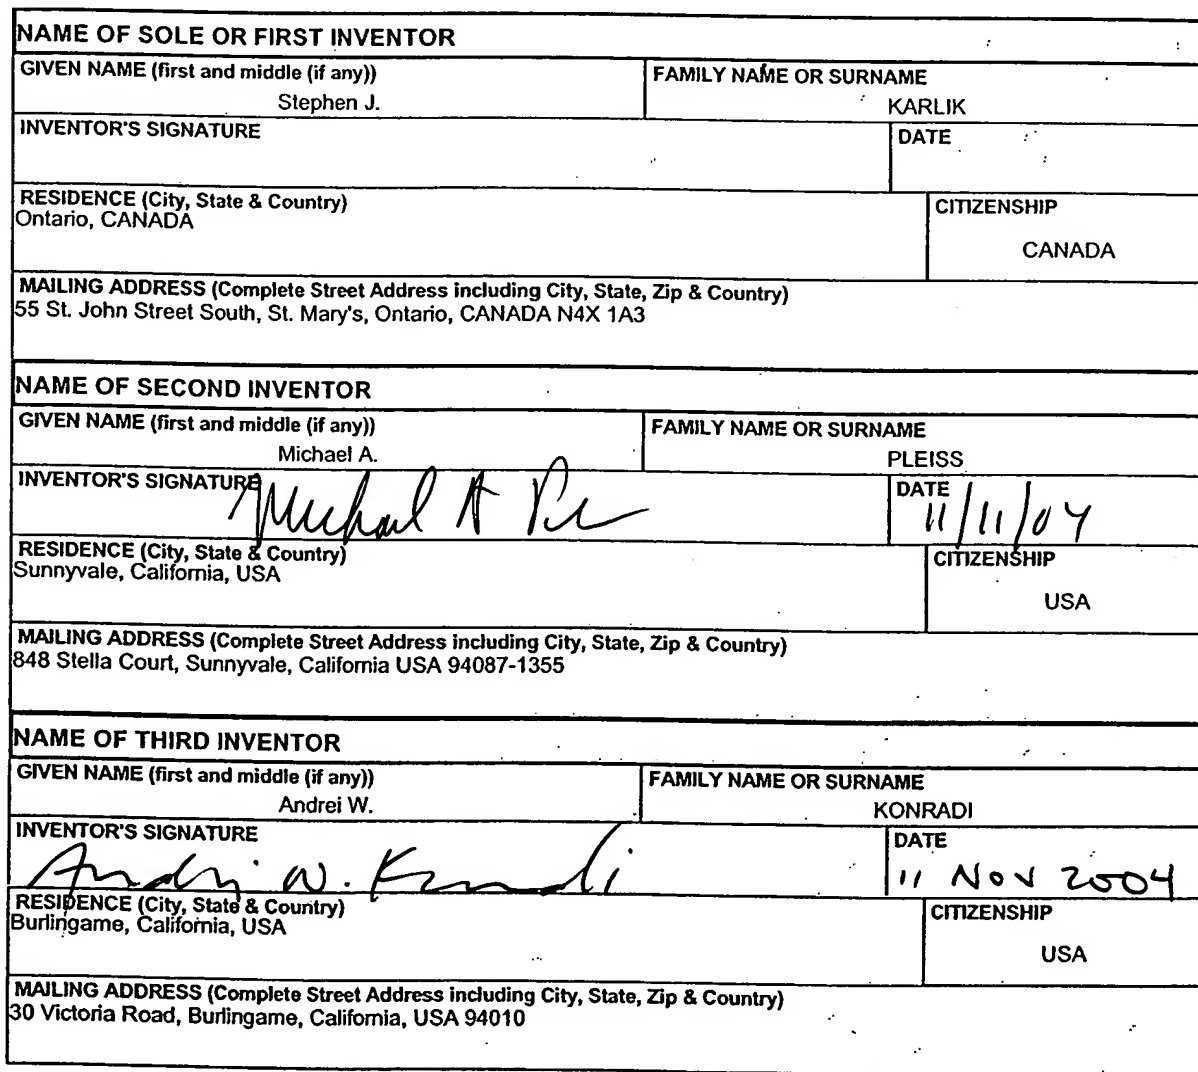 NAME OF SOLE OR FIRST INVENTOR
GIVEN NAME (first and middle (if any)) FAMILY NAME OR SURNAME
Stephen J. KARLIK
INVENTOR'S SIGNATURE DATE
RESIDENCE (City, State & Country) CITIZENSHIP
Ontario, CANADA
CANADA
MAILING ADDRESS (Complete Street Address including City, State, Zip & Country)
55 St. John Street South, St. Mary's, Ontario, CANADA N4X 1A3
NAME OF SECOND INVENTOR
GIVEN NAME (first and middle (if any)) FAMILY NAME OR SURNAME
Michael A. PLEISS
INVENTOR'S SIGNATURE DATE
Michael A 11/11/04
RESIDENCE (City, State & Country) CITIZENSHIP
Sunnyvale, California, USA
USA
MAILING ADDRESS (Complete Street Address including City, State, Zip & Country)
848 Stella Court, Sunnyvale, California USA 94087-1355
NAME OF THIRD INVENTOR
GIVEN NAME (first and middle (if any)) FAMILY NAME OR SURNAME
Andrei W. KONRADI
INVENTOR'S SIGNATURE DATE
Andrei W. Konradi 11 NOV 2004
RESIDENCE (City, State & Country) CITIZENSHIP
Burlingame, California, USA
USA
MAILING ADDRESS (Complete Street Address including City, State, Zip & Country)
30 Victoria Road, Burlingame, California, USA 94010